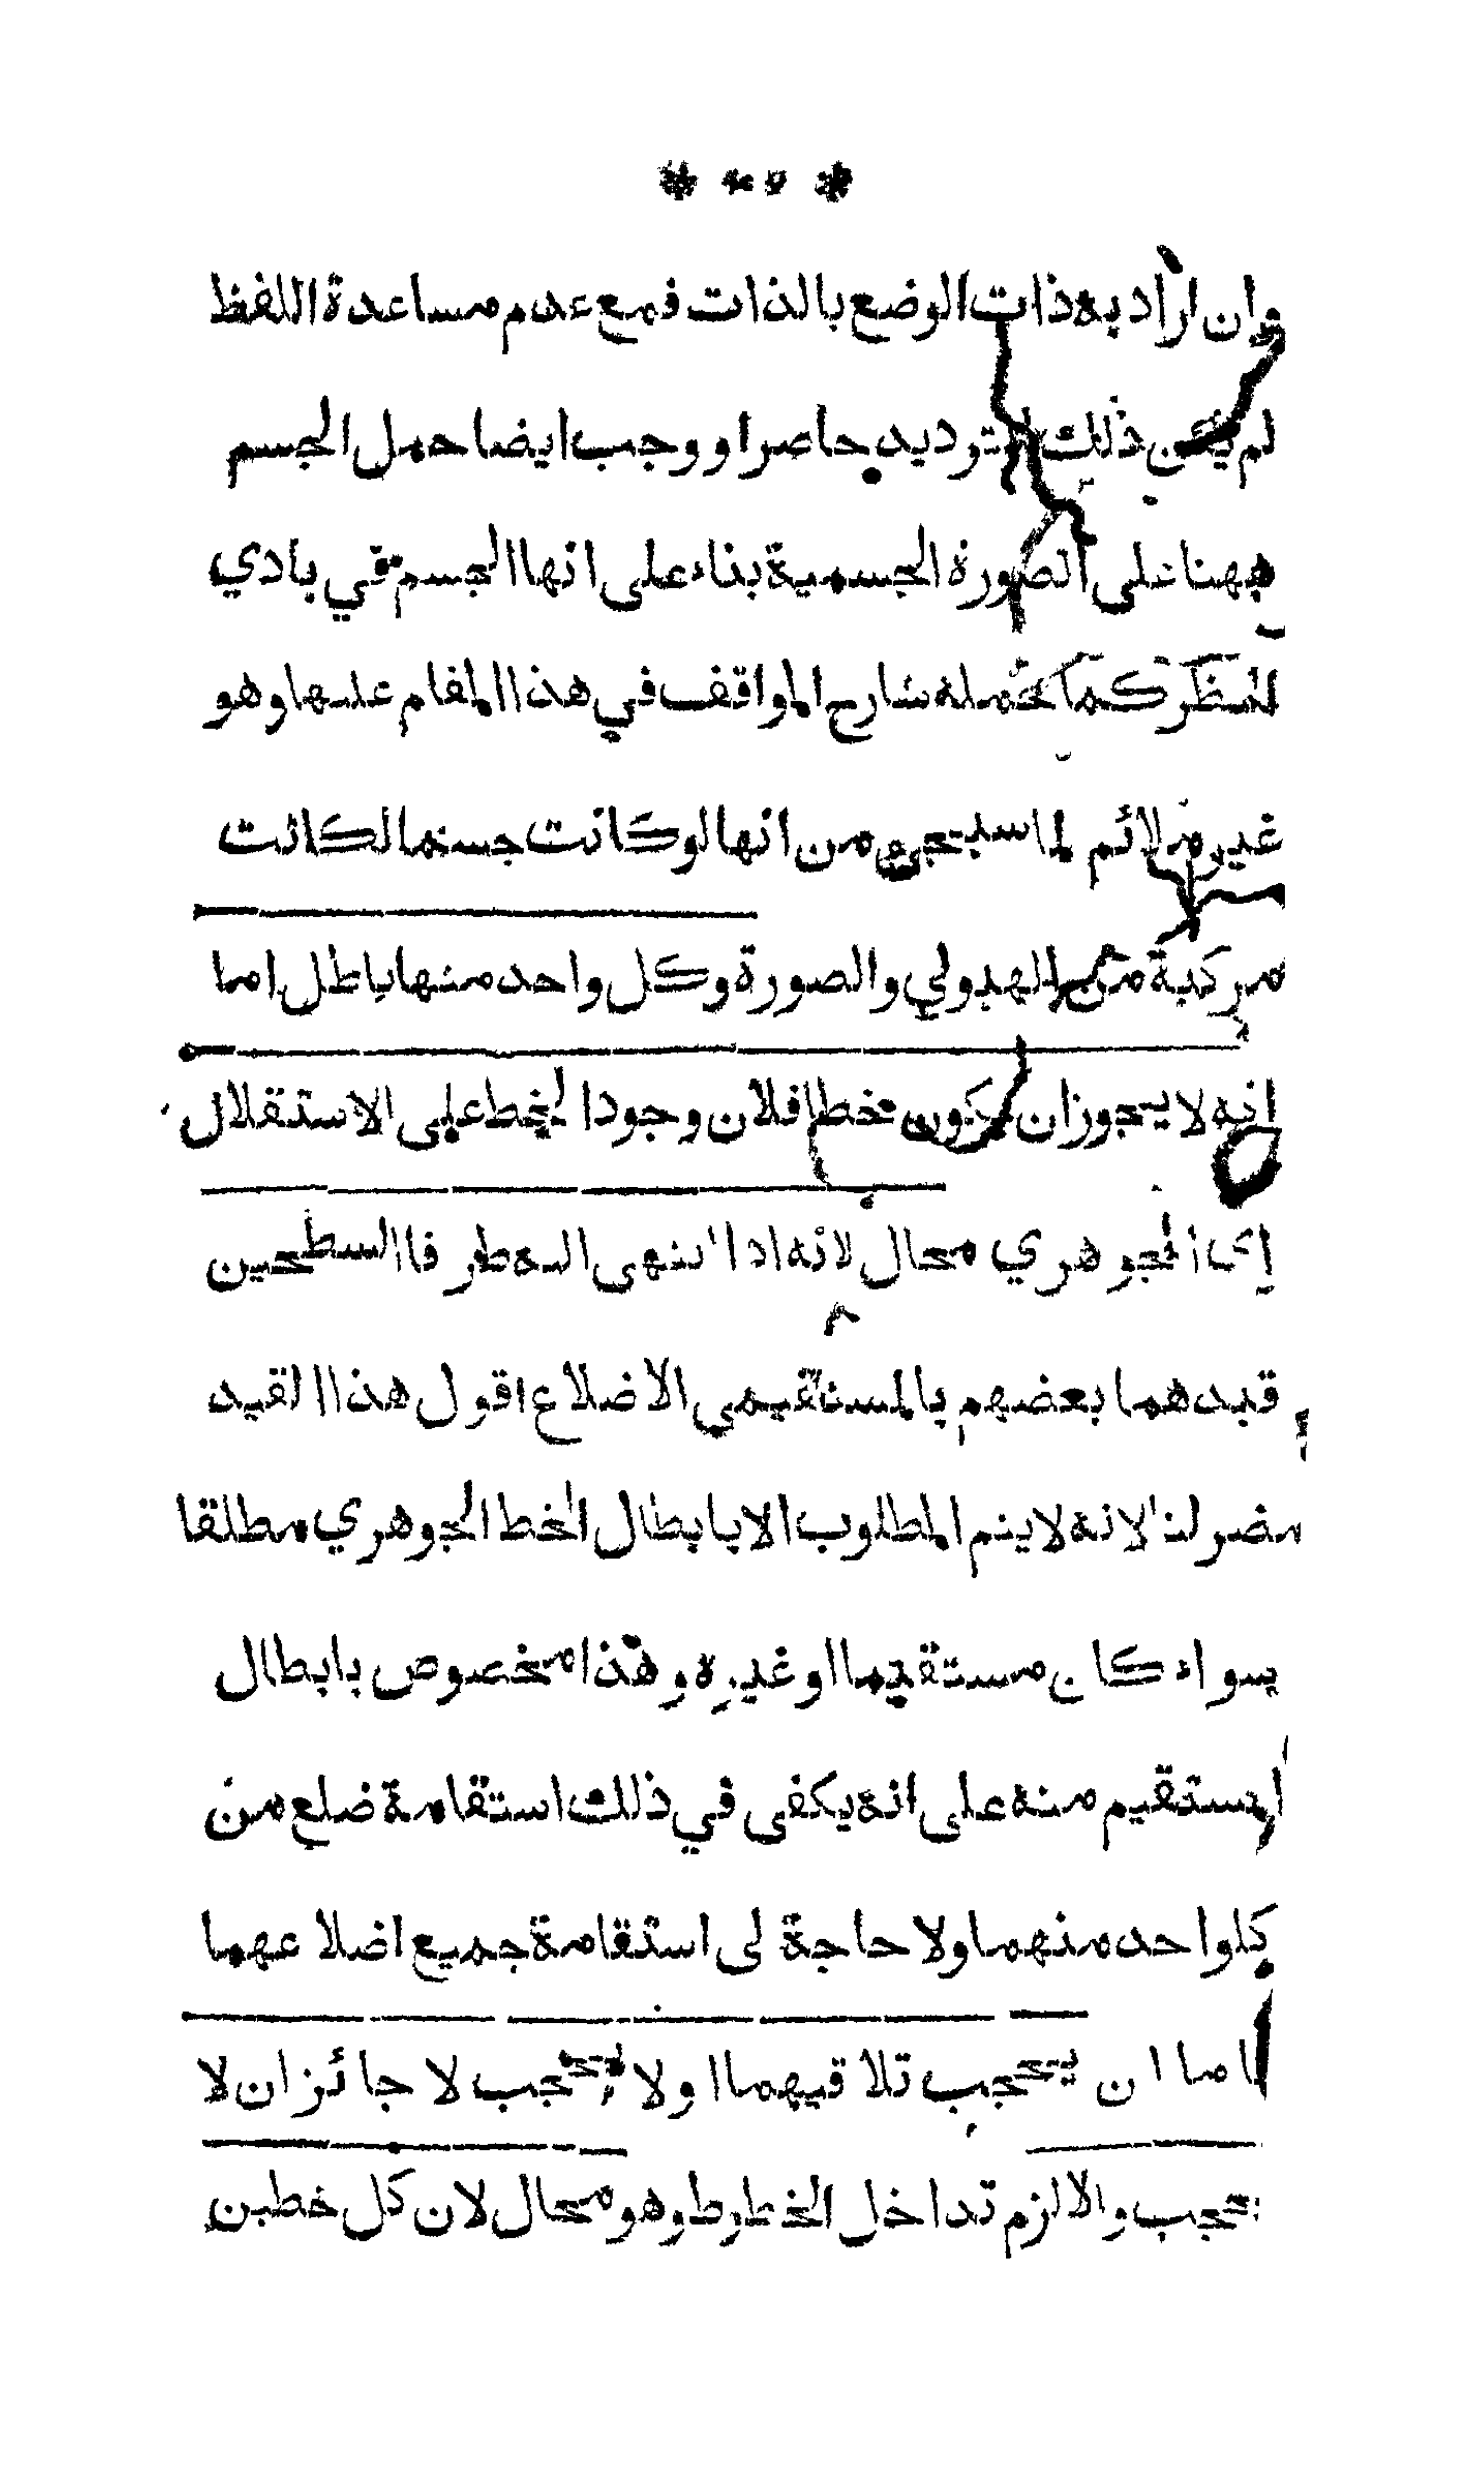 وان اراد به ذات الوضع بالذات فمع عدم مساعدة اللفظ
لم يكن ذلك الترديد حاصرا ووجب ايضا حمل الجسم
ههنا على الصورة الجسمية بناء على انها الجسم في بادي
النظر كما حمله شارح المواقف في هذا المقام عليها وهو
غير ملائم لما سيجيء من انها لو كانت جسما لكانت
مركبة من الهيولي والصورة وكل واحد منها باطل اما
انه لا يجوز ان يكون خطا فلان وجود الخط على الاستقلال
اي الجوهري محال لانه اذا انتهى اليه طرفا السطحين
قيدهما بعضهم بالمستقيمي الاضلاع اقول هذا القيد
مضر لنا لانه لا يتم المطلوب الا بابطال الخط الجوهري مطلقا
سواء كان مستقيما او غيره وهذا مخصوص بابطال
المستقيم منه على انه يكفى في ذلك استقامة ضلع من
كل واحد منهما ولا حاجة لى استقامة جميع اضلاعهما
اما ان يحجب تلاقيهما او لا يحجب لا جائز ان لا
يحجب والا لزم تداخل الخطوط وهو محال لان كل خطين